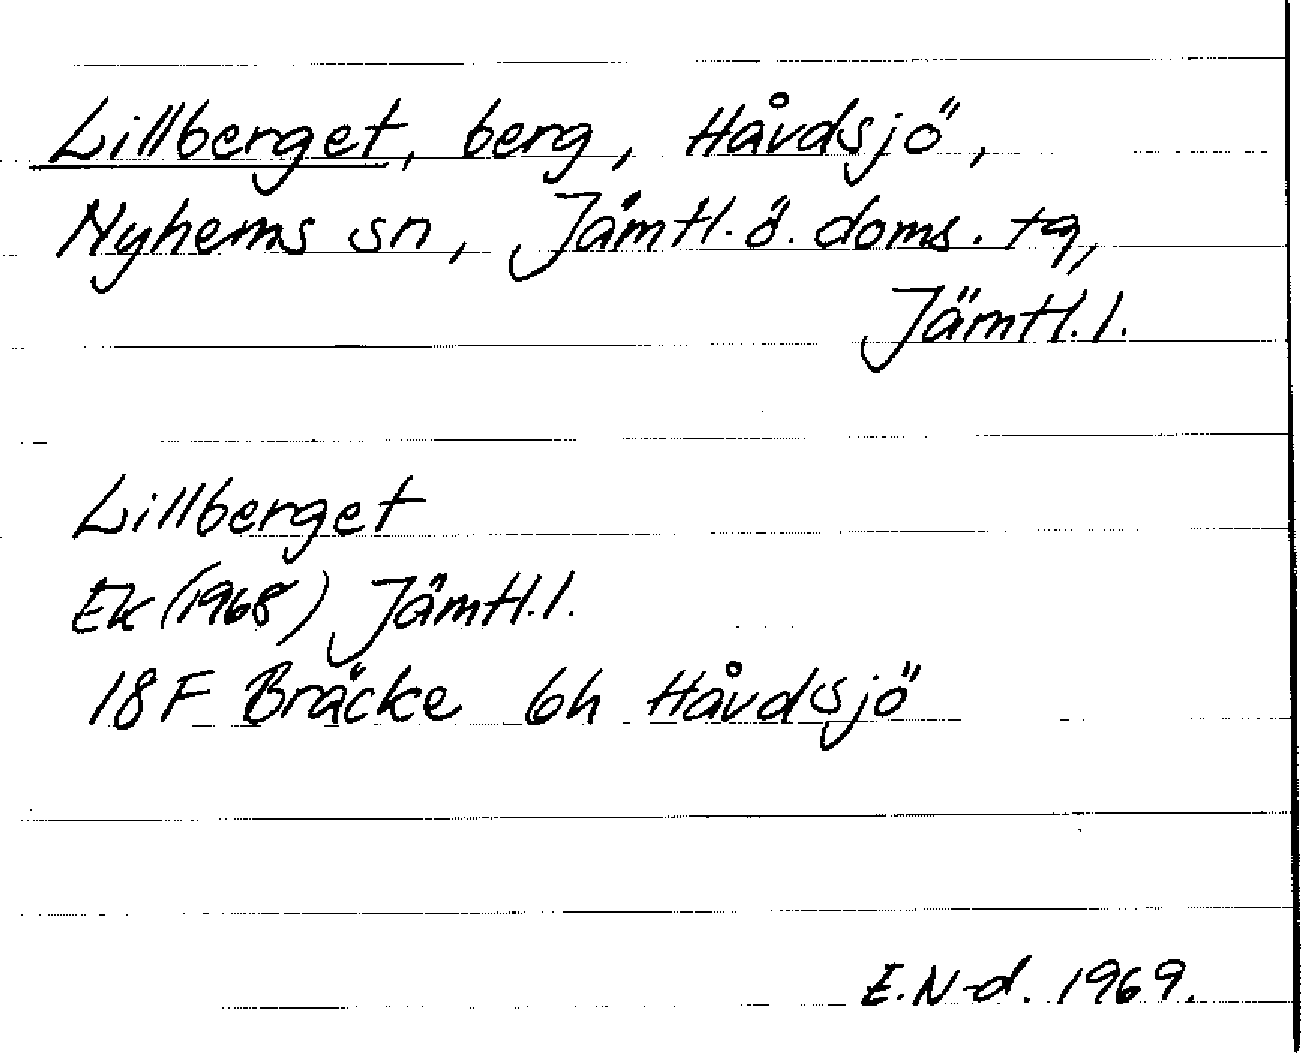 Lillberget, berg, Håvdsjö,
Nyhems sn, Jämtl. ö. doms. tg,
Jämtl. l.
Lillberget
Ek (1968) Jämtl. l.
18 F Bräcke 6h Håvdsjö
E. N-d. 1969.